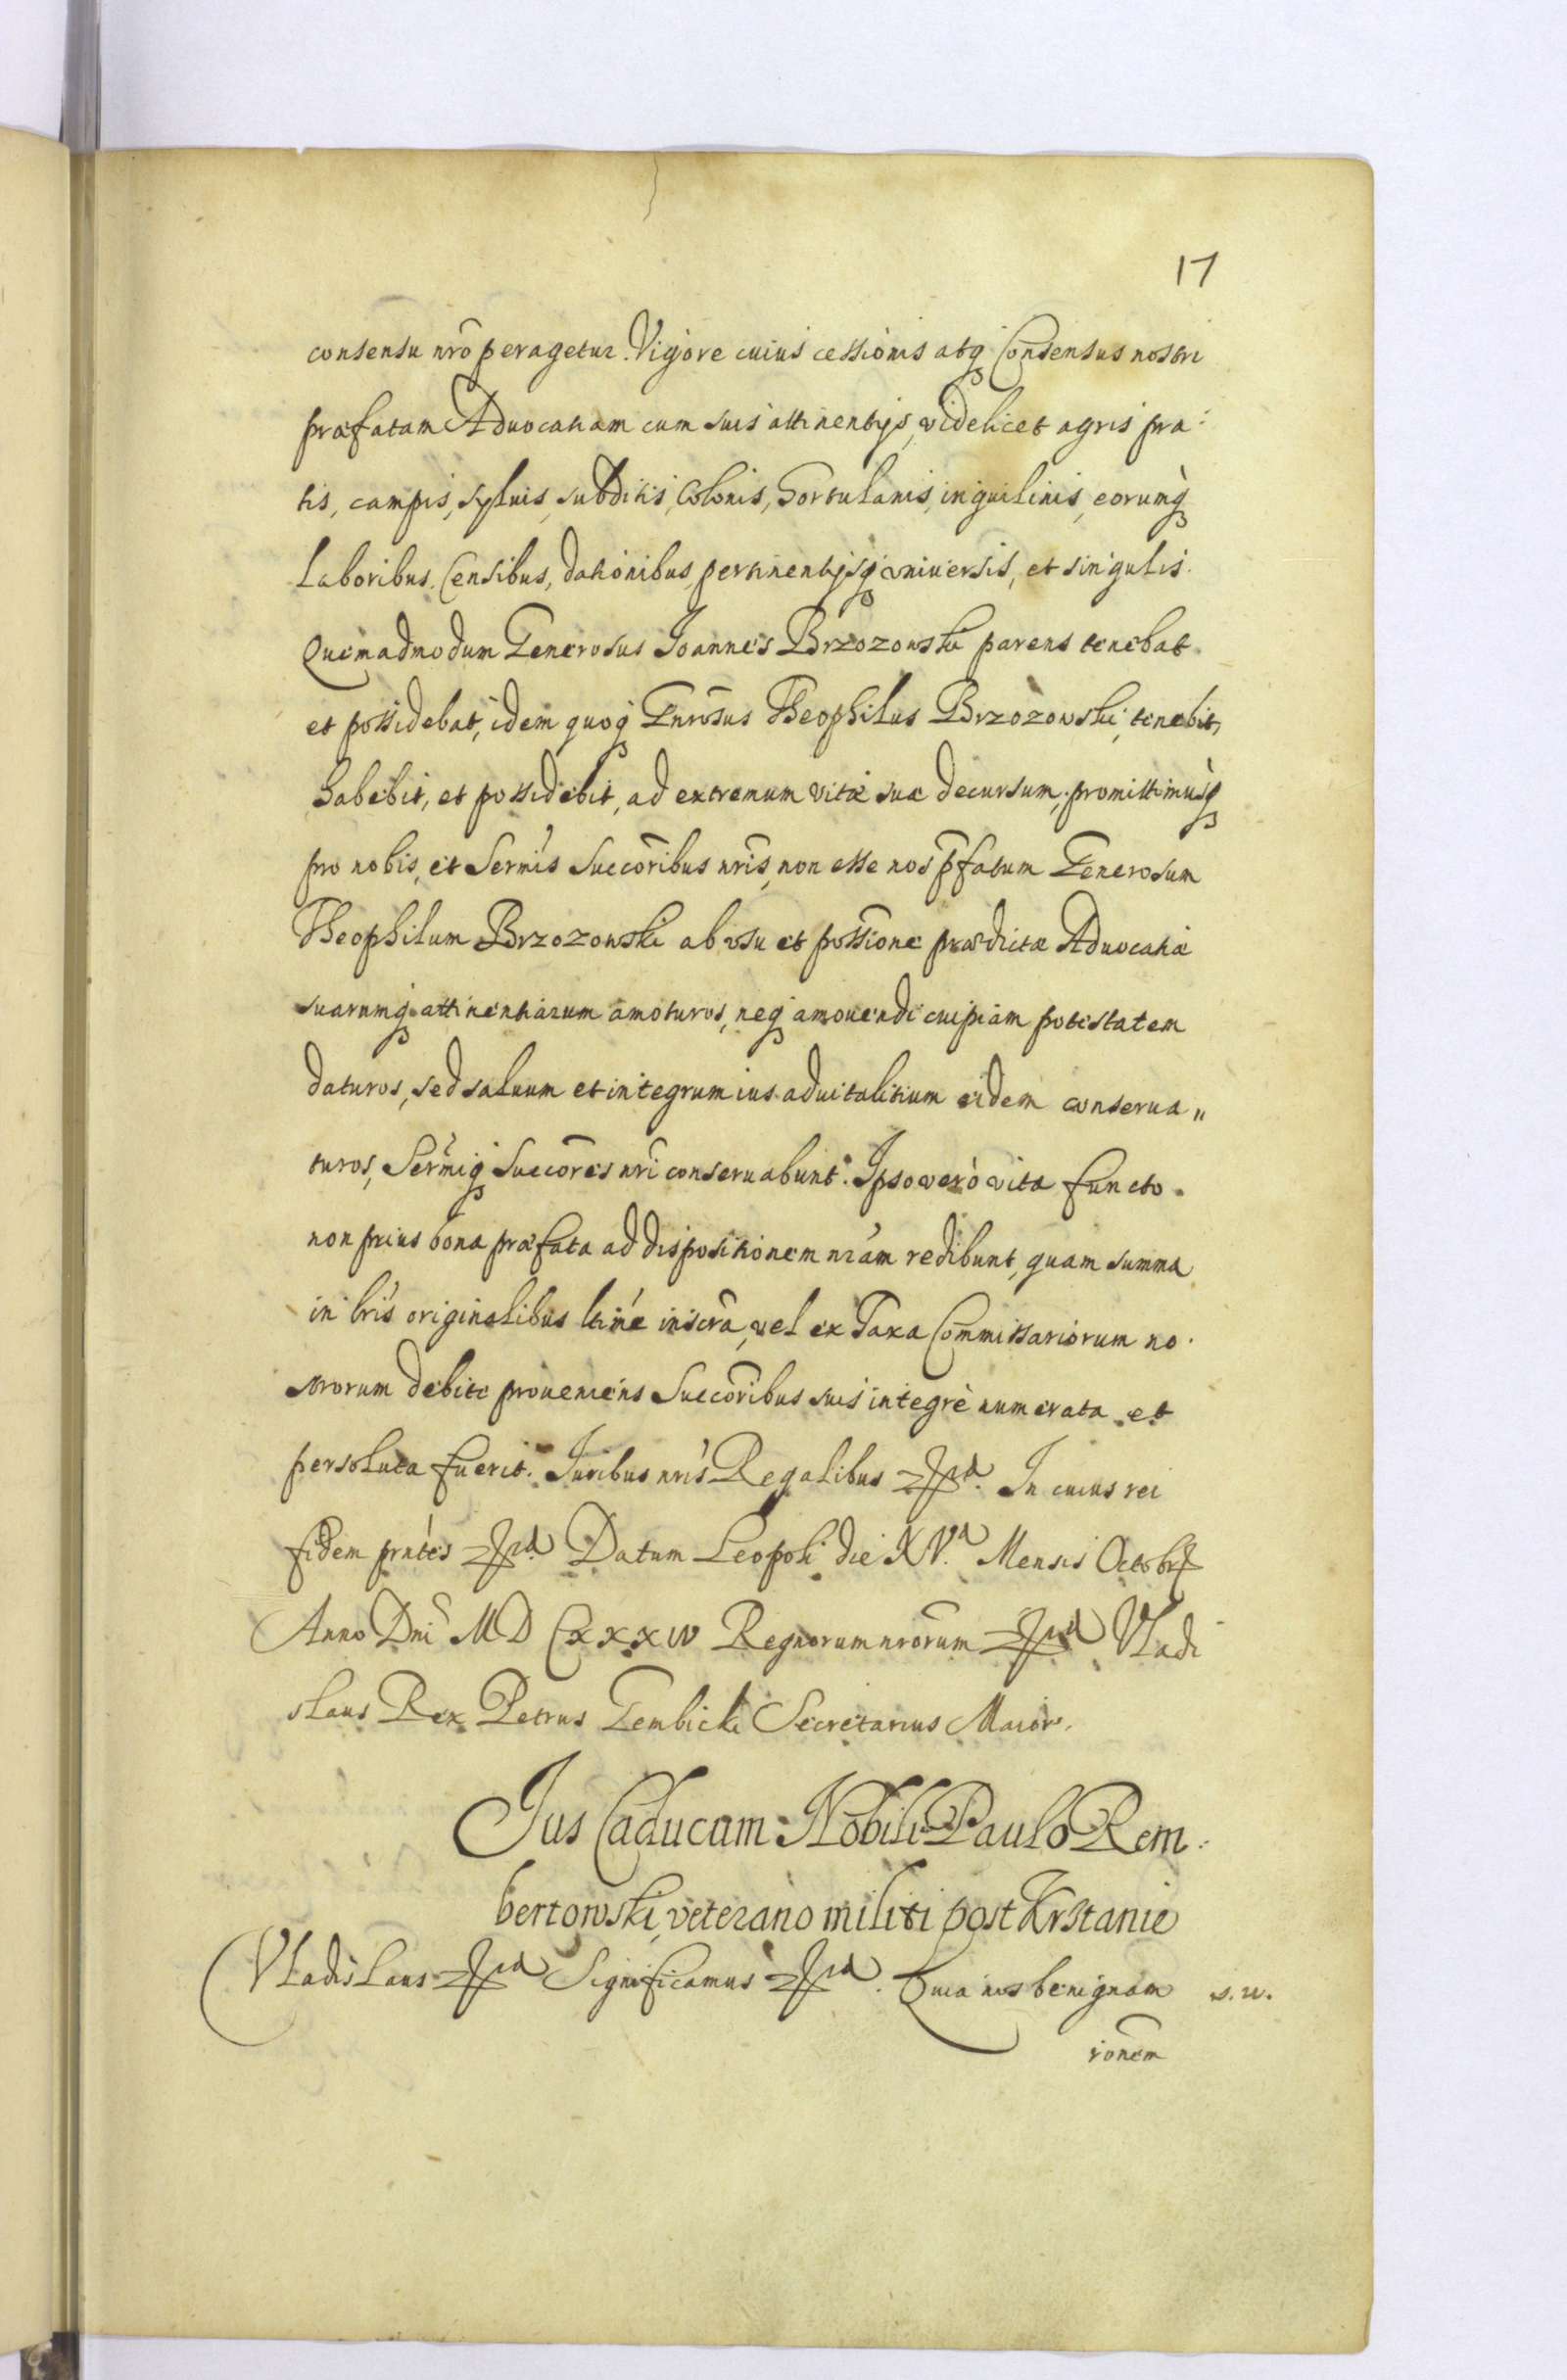 17
consensu nrõ peragetur. Vigore cuius cessionis atq Consensus nostri
præfatam Aduocatiam cum suis attinentijs, videlicet agris pra-
tis, campis, syluis, subditis, Colonis, Hortulanis, inquilinis, eorumq
Laboribus, Censibus, dationibus, pertinentijsq vniuersis, et singulis.
Quemadmodum Generosus Joannes Brzozowski parens tenebat
et possidebat, idem quoq Gnrõsus Theophilus Brzozowski, tenebit,
habebit, et possidebit, ad extremum vitæ suæ decursum, promittimusq
pro nobis, et Sermis Succoribus nris, non esse nos pfatum Generosum
Theophilum Brzozowski ab vsu et possione prædictæ Aduocatiæ
suarumq attinentiarum amoturos, neq amouendi cuipiam potestatem
daturos, sed saluum et integrum ius aduitalitium eidem conserua„
turos, Sermiq Succores nri conseruabunt. Ipso verò vita functo.
non prius bona præfata ad dispositionem nram redibunt, quam summa
in lris originalibus ltime inscra, vel ex Taxa Commissariorum no-
strorum debite proueniens Succoribus suis integrè numerata et
persoluta fuerit. Juribus nris Regalibus In cuius rei
fidem prntes Datum Leopoli die XV.a Mensis Octobr
Anno Dni MD CXXXIV Regnorum nrorum Vladi-
slaus Rex Petrus Gembicki Secretarius Maior.
Jus Caducum Nobili Paulo Rem-
bertowski, veterano militi post Krstanie
Vladislaus Significamus Quia nos benignam s. u.
ronem